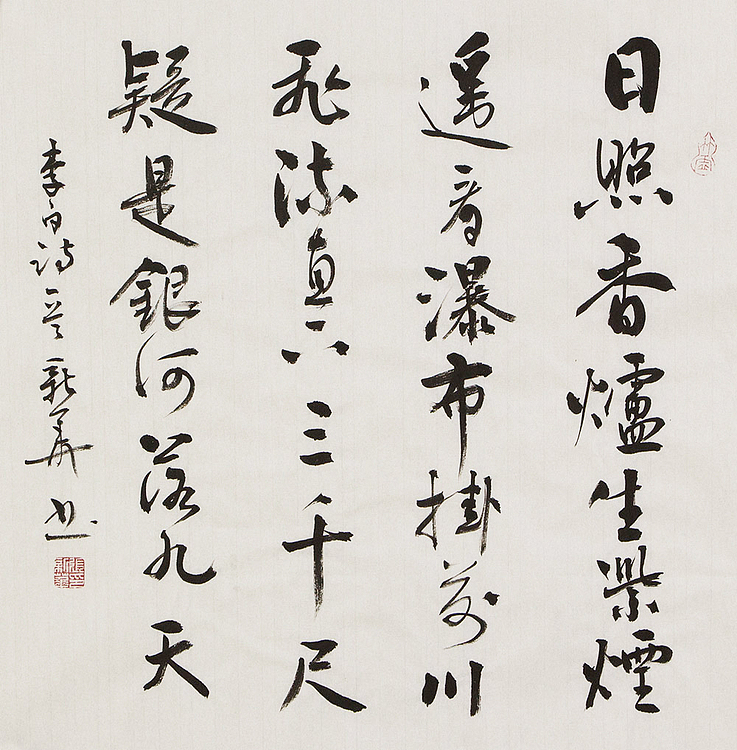 日照香爐生紫煙
遥看瀑布掛前川
飛流直下三千尺
疑是銀河落九天
李白詩一首新華书